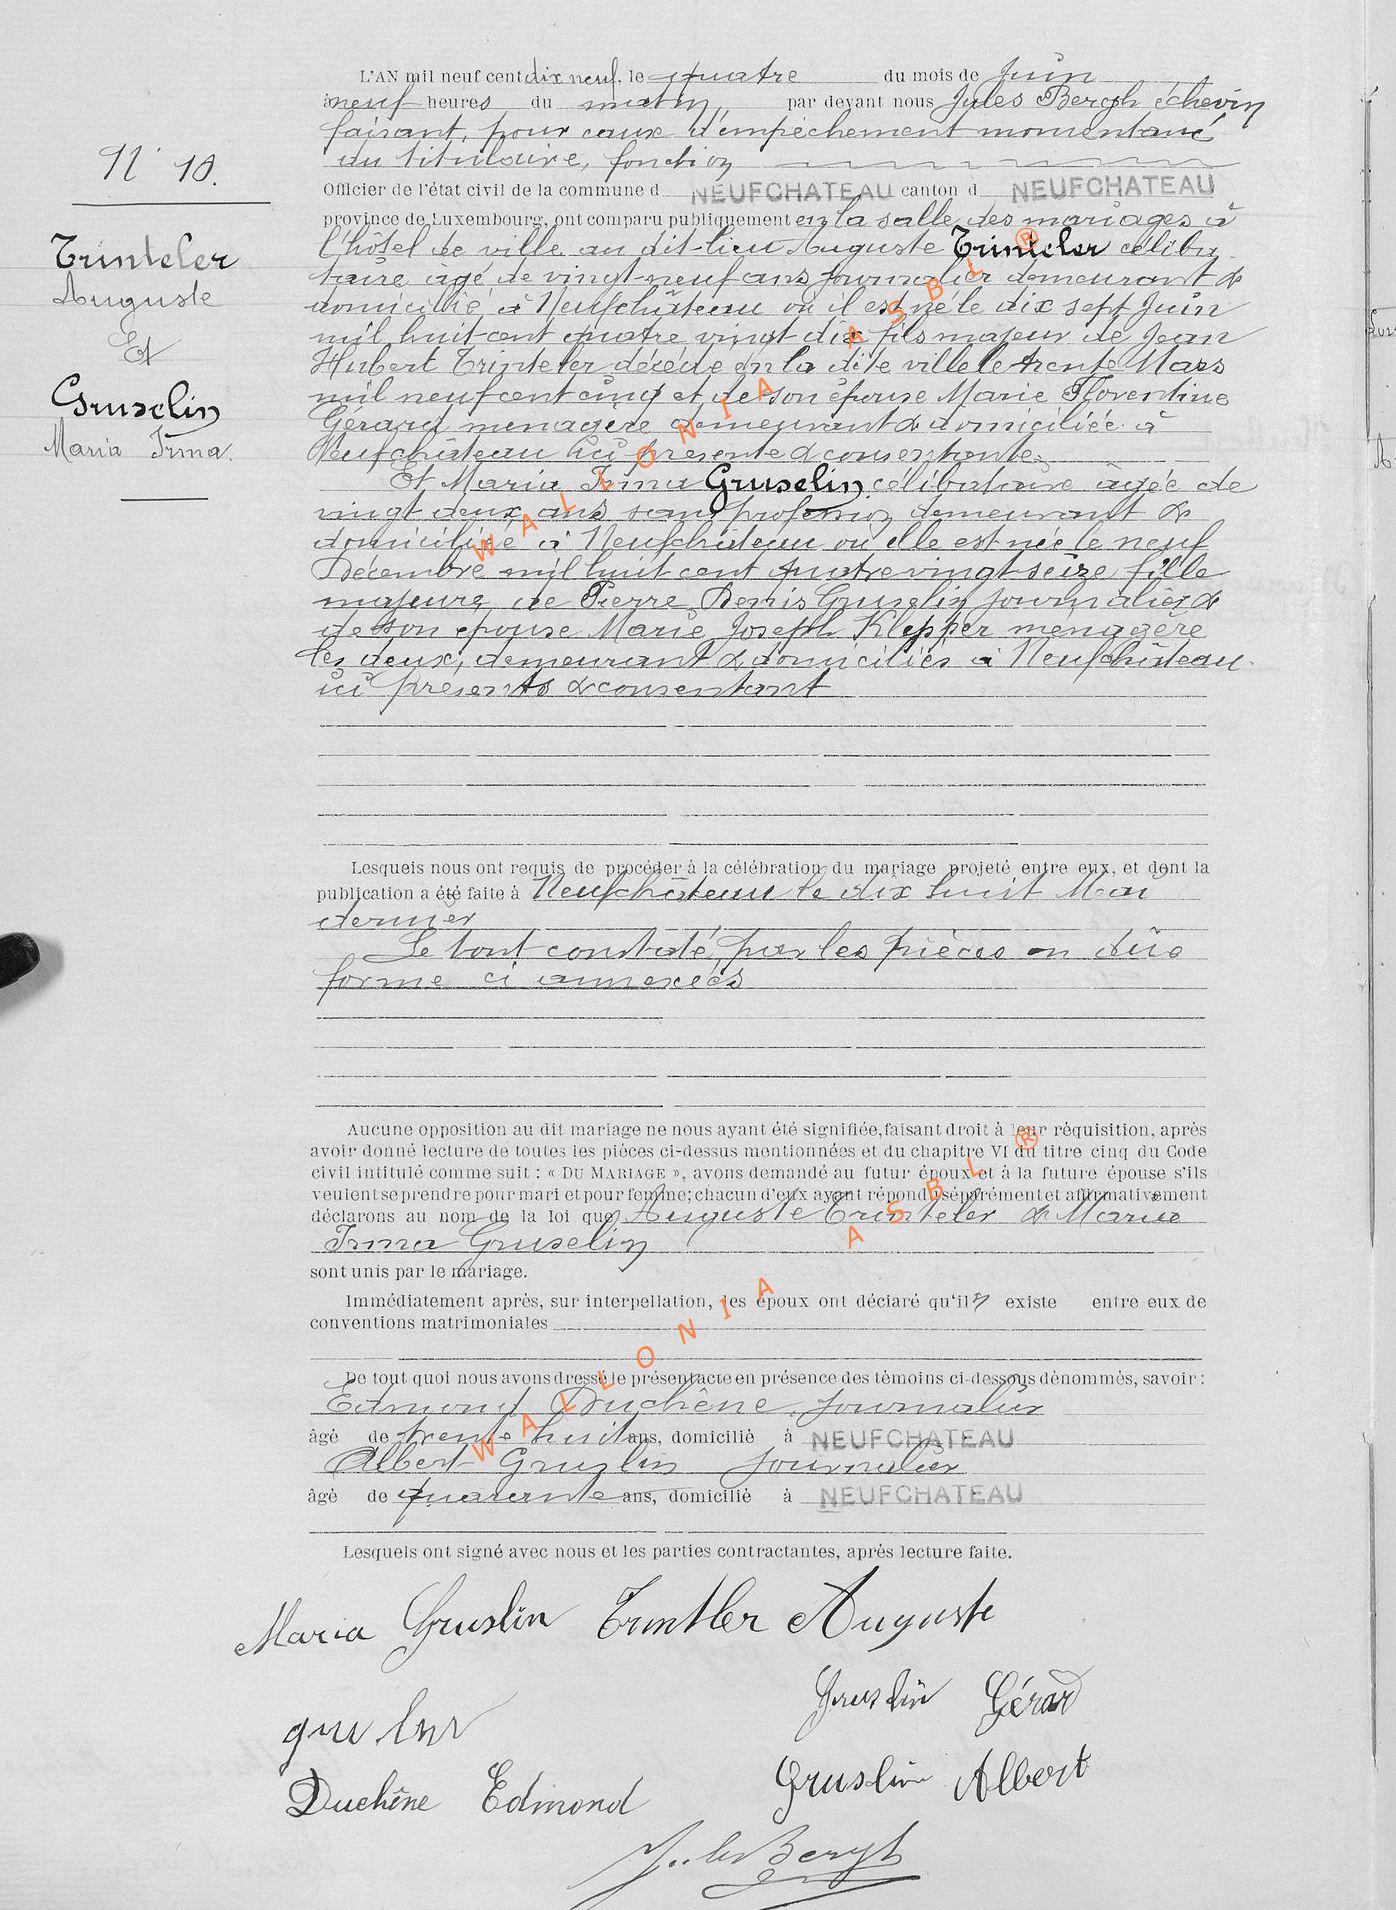 N° 10.
Trinteler
Auguste
Et
Gruselin
Maria Irma.
L'AN mil neuf cent dix neuf, le quatre du mois de Juin
à neuf heures du matin, par devant nous Jules Bergh échevin
faisant, pour cause d'empêchement momentané
du titulaire, fonction
Officier de l'état civil de la commune d NEUFCHATEAU canton d NEUFCHATEAU
province de Luxembourg, ont comparu publiquement en la salle des mariages à
l'hôtel de ville au dit-lieu Auguste Trinteler céliba
taire agé de vingt-neuf ans journalier demeurant &
domicilié à Neufchâteau où il est né le dix sept Juin
mil huit cent quatre vingt dix fils majeur de Jean
Hubert Trinteler décédé en la dite ville le trente Mars
mil neuf cent cinq et de son épouse Marie Florentine
Gérard ménagère demeurant & domiciliée à
Neufchâteau ici présente & consentante.
Et Maria Irma Gruselin célibataire âgée de
vingt deux ans sans profession demeurant &
domiciliée à Neufchâteau où elle est née le neuf
Décembre mil huit cent quatre vingt seize fille
majeure de Pierre Denis Gruselin journalier &
de son épouse Marie Joseph Klepper ménagère
les deux, demeurant & domiciliés à Neufchâteau.
ici présents & consentant
Lesquels nous ont requis de procéder à la célébration du mariage projeté entre eux, et dont la
publication a été faite à Neufchâteau le dix huit Mai
dernier
Le tout constaté, par les pièces en dûe
forme ci annexées
Aucune opposition au dit mariage ne nous ayant été signifiée, faisant droit à leur réquisition, après
avoir donné lecture de toutes les pièces ci-dessus mentionnées et du chapitre VI du titre cinq du Code
civil intitulé comme suit : « DU MARIAGE », avons demandé au futur époux et à la future épouse s'ils
veulent se prendre pour mari et pour femme; chacun d'eux ayant répondu séparément et affirmativement
déclarons au nom de la loi que Auguste Trinteler & Maria
Irma Gruselin
sont unis par le mariage.
Immédiatement après, sur interpellation, les époux ont déclaré qu'il n existe entre eux de
conventions matrimoniales
De tout quoi nous avons dressé le présent acte en présence des témoins ci-dessous dénommés, savoir :
Edmond Duchêne, journalier
âgé de trente huit ans, domicilié à NEUFCHATEAU
Albert Gruslin journalier
âgé de quarante ans, domicilié à NEUFCHATEAU
Lesquels ont signé avec nous et les parties contractantes, après lecture faite.
Maria Gruslin Trintler Auguste
Gruslin Gérard
Duchêne Edmond Gruslin Albert
Jules Bergh
WALLONIA ASBL ®
WALLONIA ASBL ®